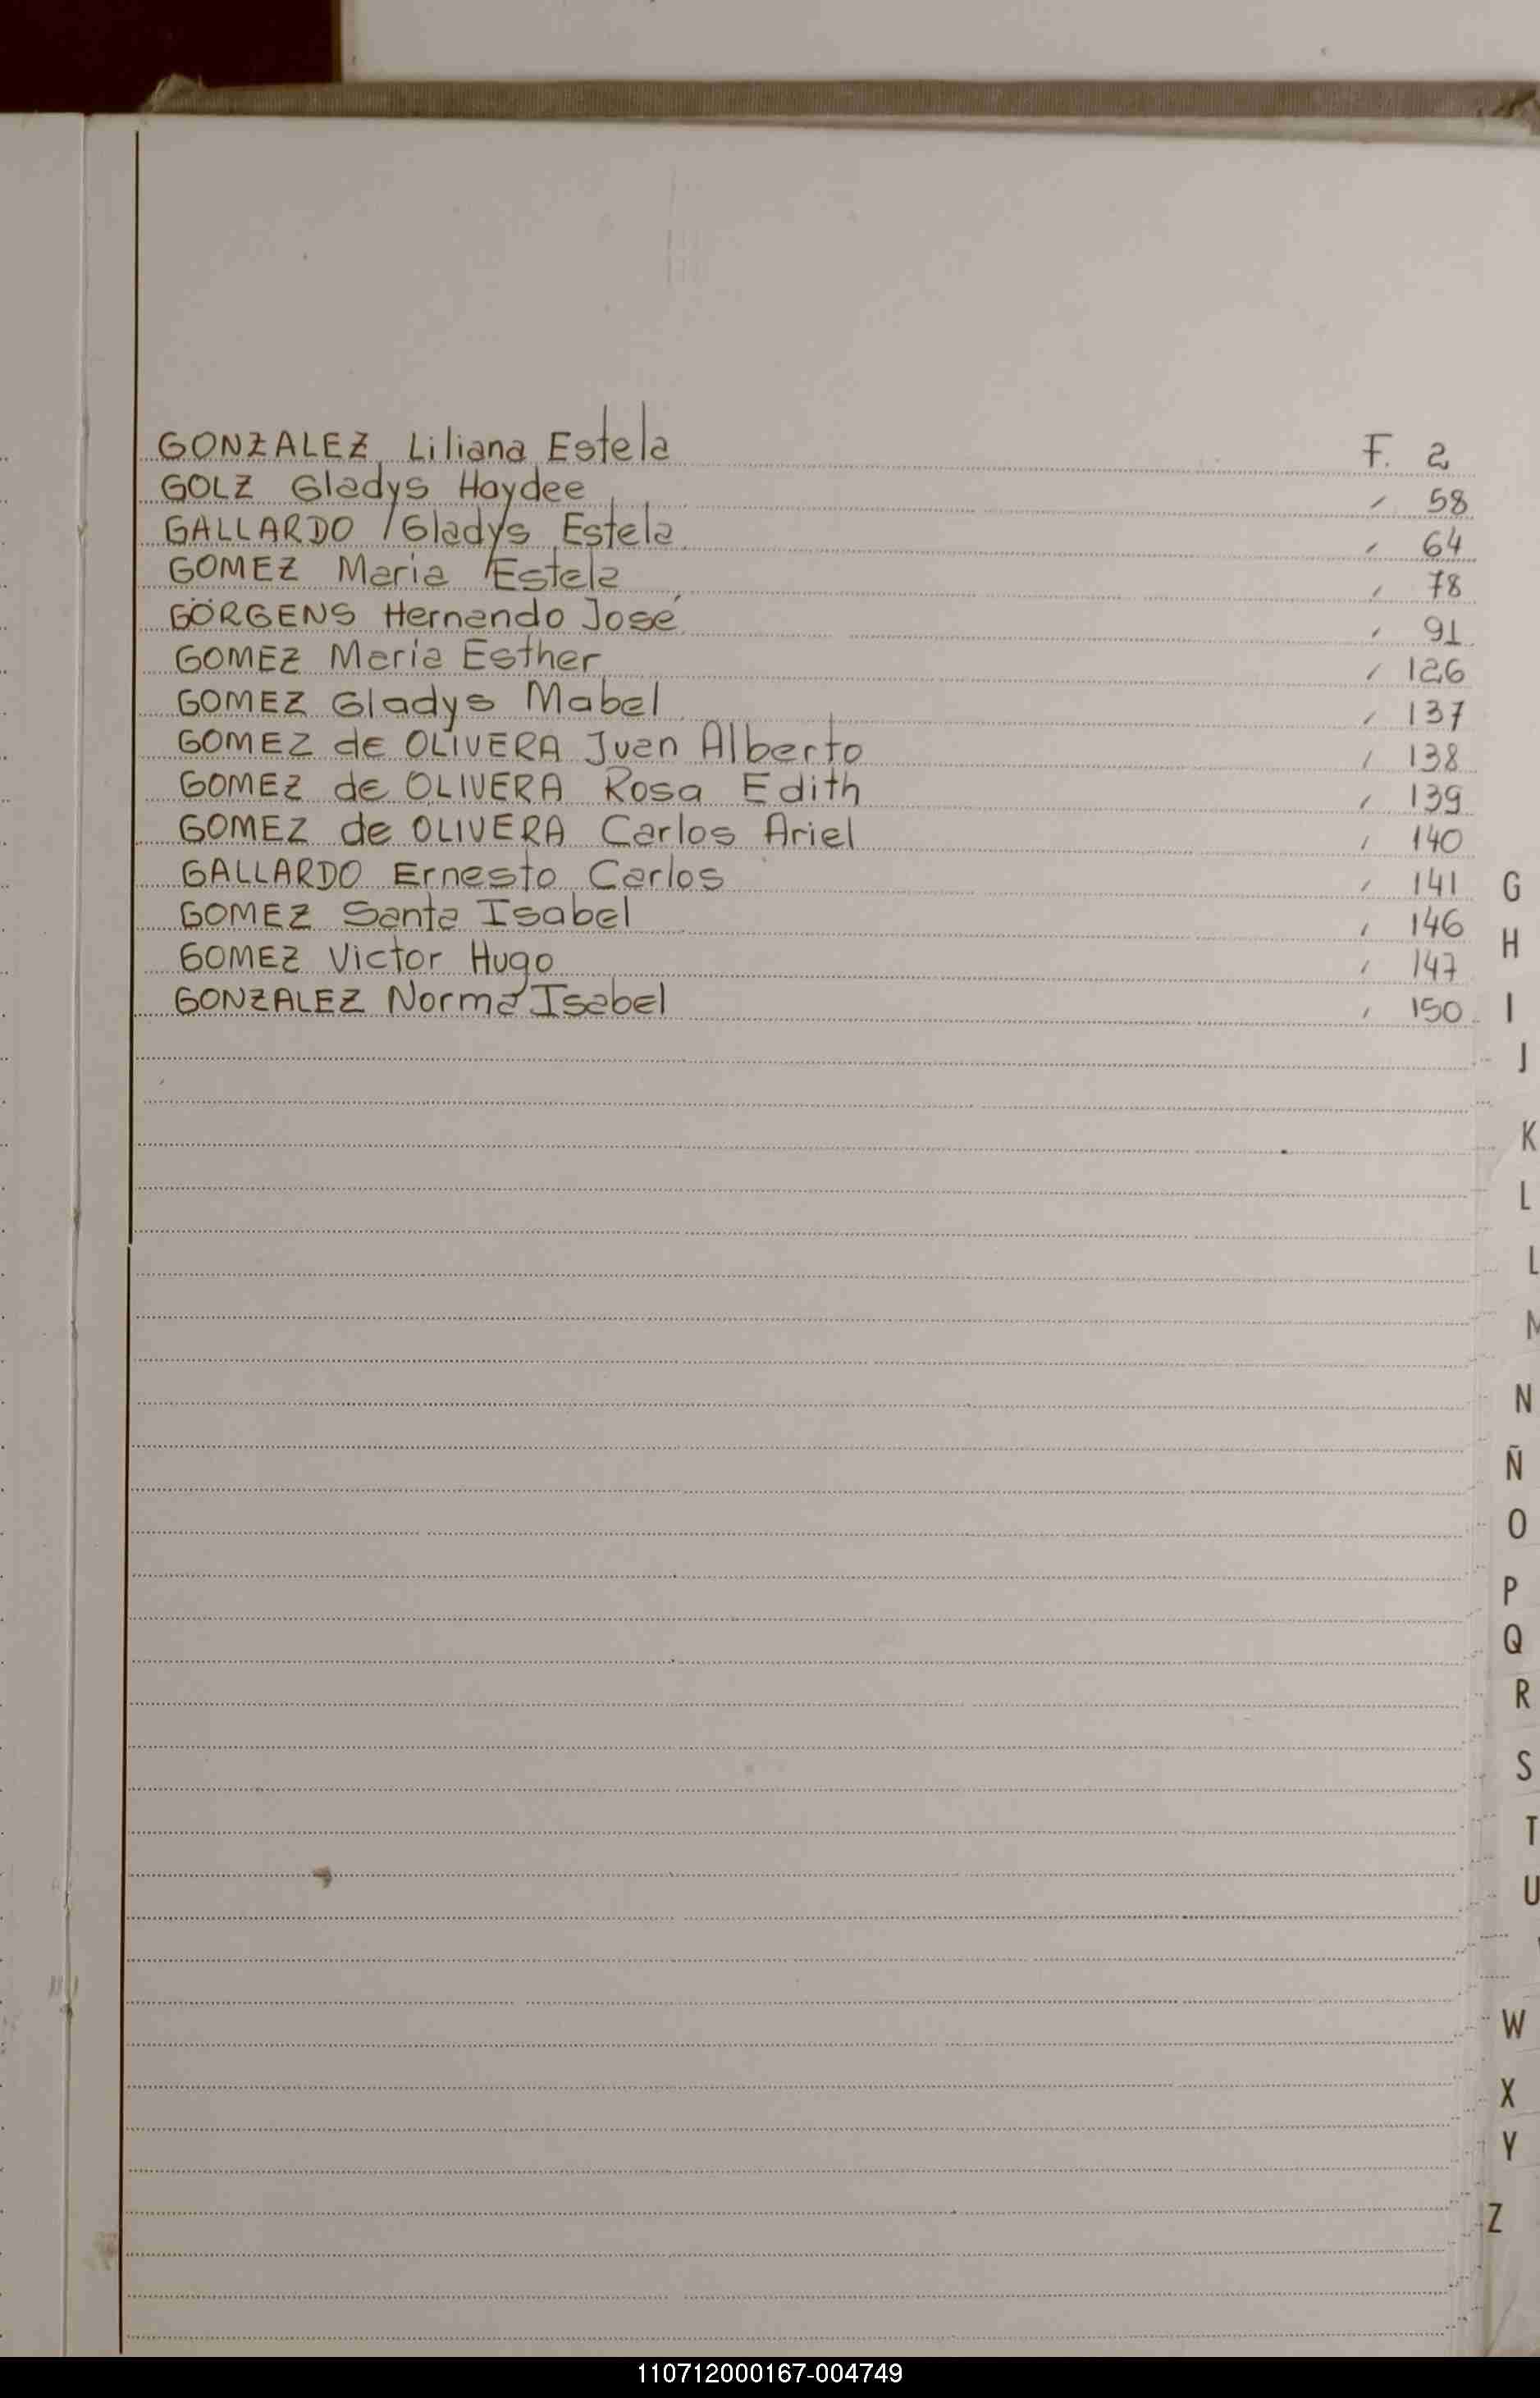 GONZALEZ Liliana Estela F. 2
GOLZ Gladys Haydee 58
GALLARDO Gladys Estela 64
GOMEZ Maria Estela 78
GÖRGENS Hernando José 91
GOMEZ Maria Esther 126
GOMEZ Gladys Mabel 137
GOMEZ de OLIVERA Juan Alberto 138
GOMEZ de OLIVERA Rosa Edith 139
GOMEZ de OLIVERA Carlos Ariel 140
GALLARDO Ernesto Carlos 141
GOMEZ Santa Isabel 146
GOMEZ Victor Hugo 147
GONZALEZ Norma Isabel 150
G
H
I
J
K
L
L
M
N
Ñ
O
P
Q
R
S
T
U
W
X
Y
Z
110712000167-004749